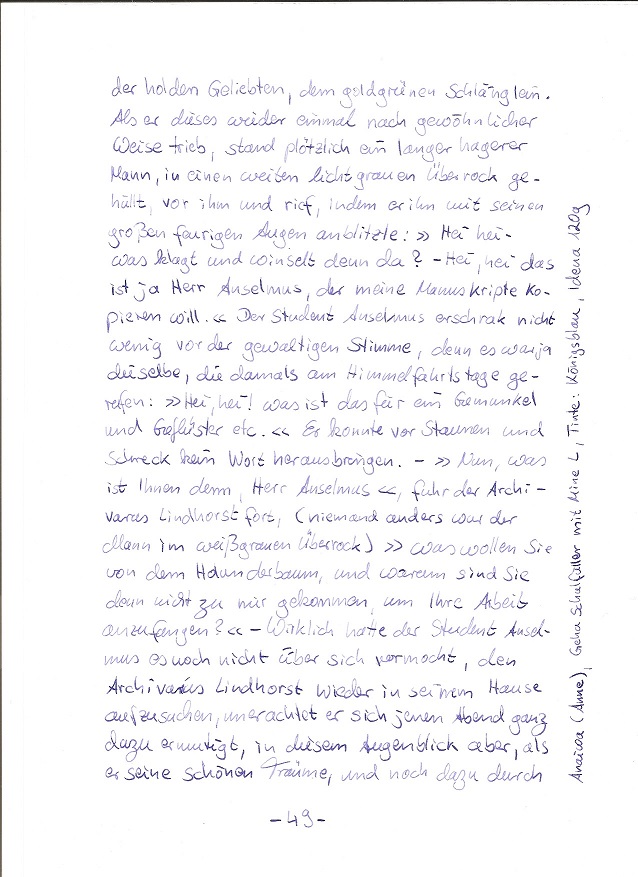 der holden Geliebten, dem goldgrünen Schlänglein.
Als er dieses wieder einmal nach gewöhnlicher
Weise trieb, stand plötzlich ein langer hagerer
Mann, in einen weiten lichtgrauen Überrock ge-
hüllt, vor ihm und rief, indem er ihn mit seinen
großen feurigen Augen anblitzte: »Hei hei-
was klagt und winselt denn da? - Hei, hei das
ist ja Herr Anselmus, der meine Manuskripte ko-
pieren will.« Der Student Anselmus erschrak nicht
wenig vor der gewaltigen Stimme, denn es war ja
dieselbe, die damals am Himmelfahrtstage ge-
rufen: »Hei, hei! was ist das für ein Gemunkel
und Geflüster etc.« Er konnte vor Staunen und
Schreck kein Wort herausbringen. - »Nun, was
ist Ihnen denn, Herr Anselmus«, fuhr der Archi-
varius Lindhorst fort, (niemand anders war der
Mann im weißgrauen Überrock) »was wollen Sie
von dem Holunderbaum, und warum sind Sie
denn nicht zu mir gekommen, um Ihre Arbeit
anzufangen?« - Wirklich hatte der Student Ansel-
mus es noch nicht über sich vermocht, den
Archivarius Lindhorst wieder in seinem Hause
aufzusuchen, unerachtet er sich jenen Abend ganz
dazu ermutigt, in diesem Augenblick aber, als
er seine schönen Träume, und noch dazu durch
-49-
(Anne), Geha Schulfüller mit Mine L, Tinte: Königsblau, Idena 120g